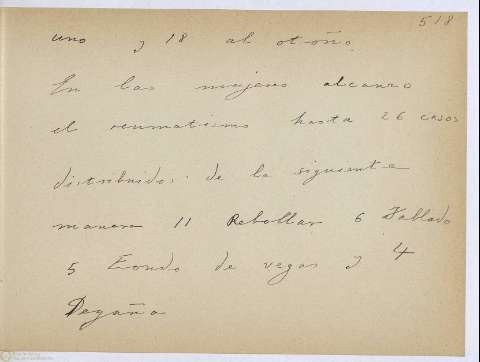 518
uno y 18 al otoño.
En las mujeres alcanzo
el reumatismo hasta 26 casos
distribuidos de la siguiente
manera 11 Rebollar 6 Tablado
5 Fondo de vegas y 4
Degaña